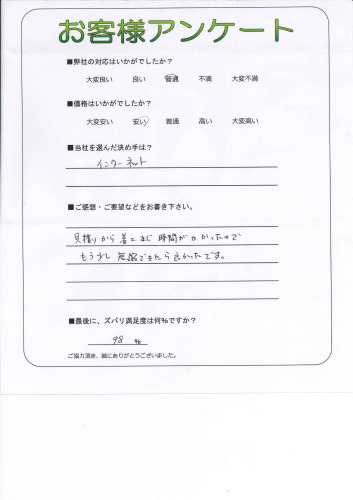 お客様アンケート
■弊社の対応はいかがでしたか？
大変良い 良い 普通 不満 大変不満
■価格はいかがでしたか？
大変安い 安い 普通 高い 大変高い
■当社を選んだ決め手は？
インターネット
■ご感想・ご要望などをお書き下さい。
見積りから着工まで時間がかかったので
もう少し短縮できたら良かったです。
■最後に、ズバリ満足度は何%ですか？
98 %
ご協力頂き、誠にありがとうございました。